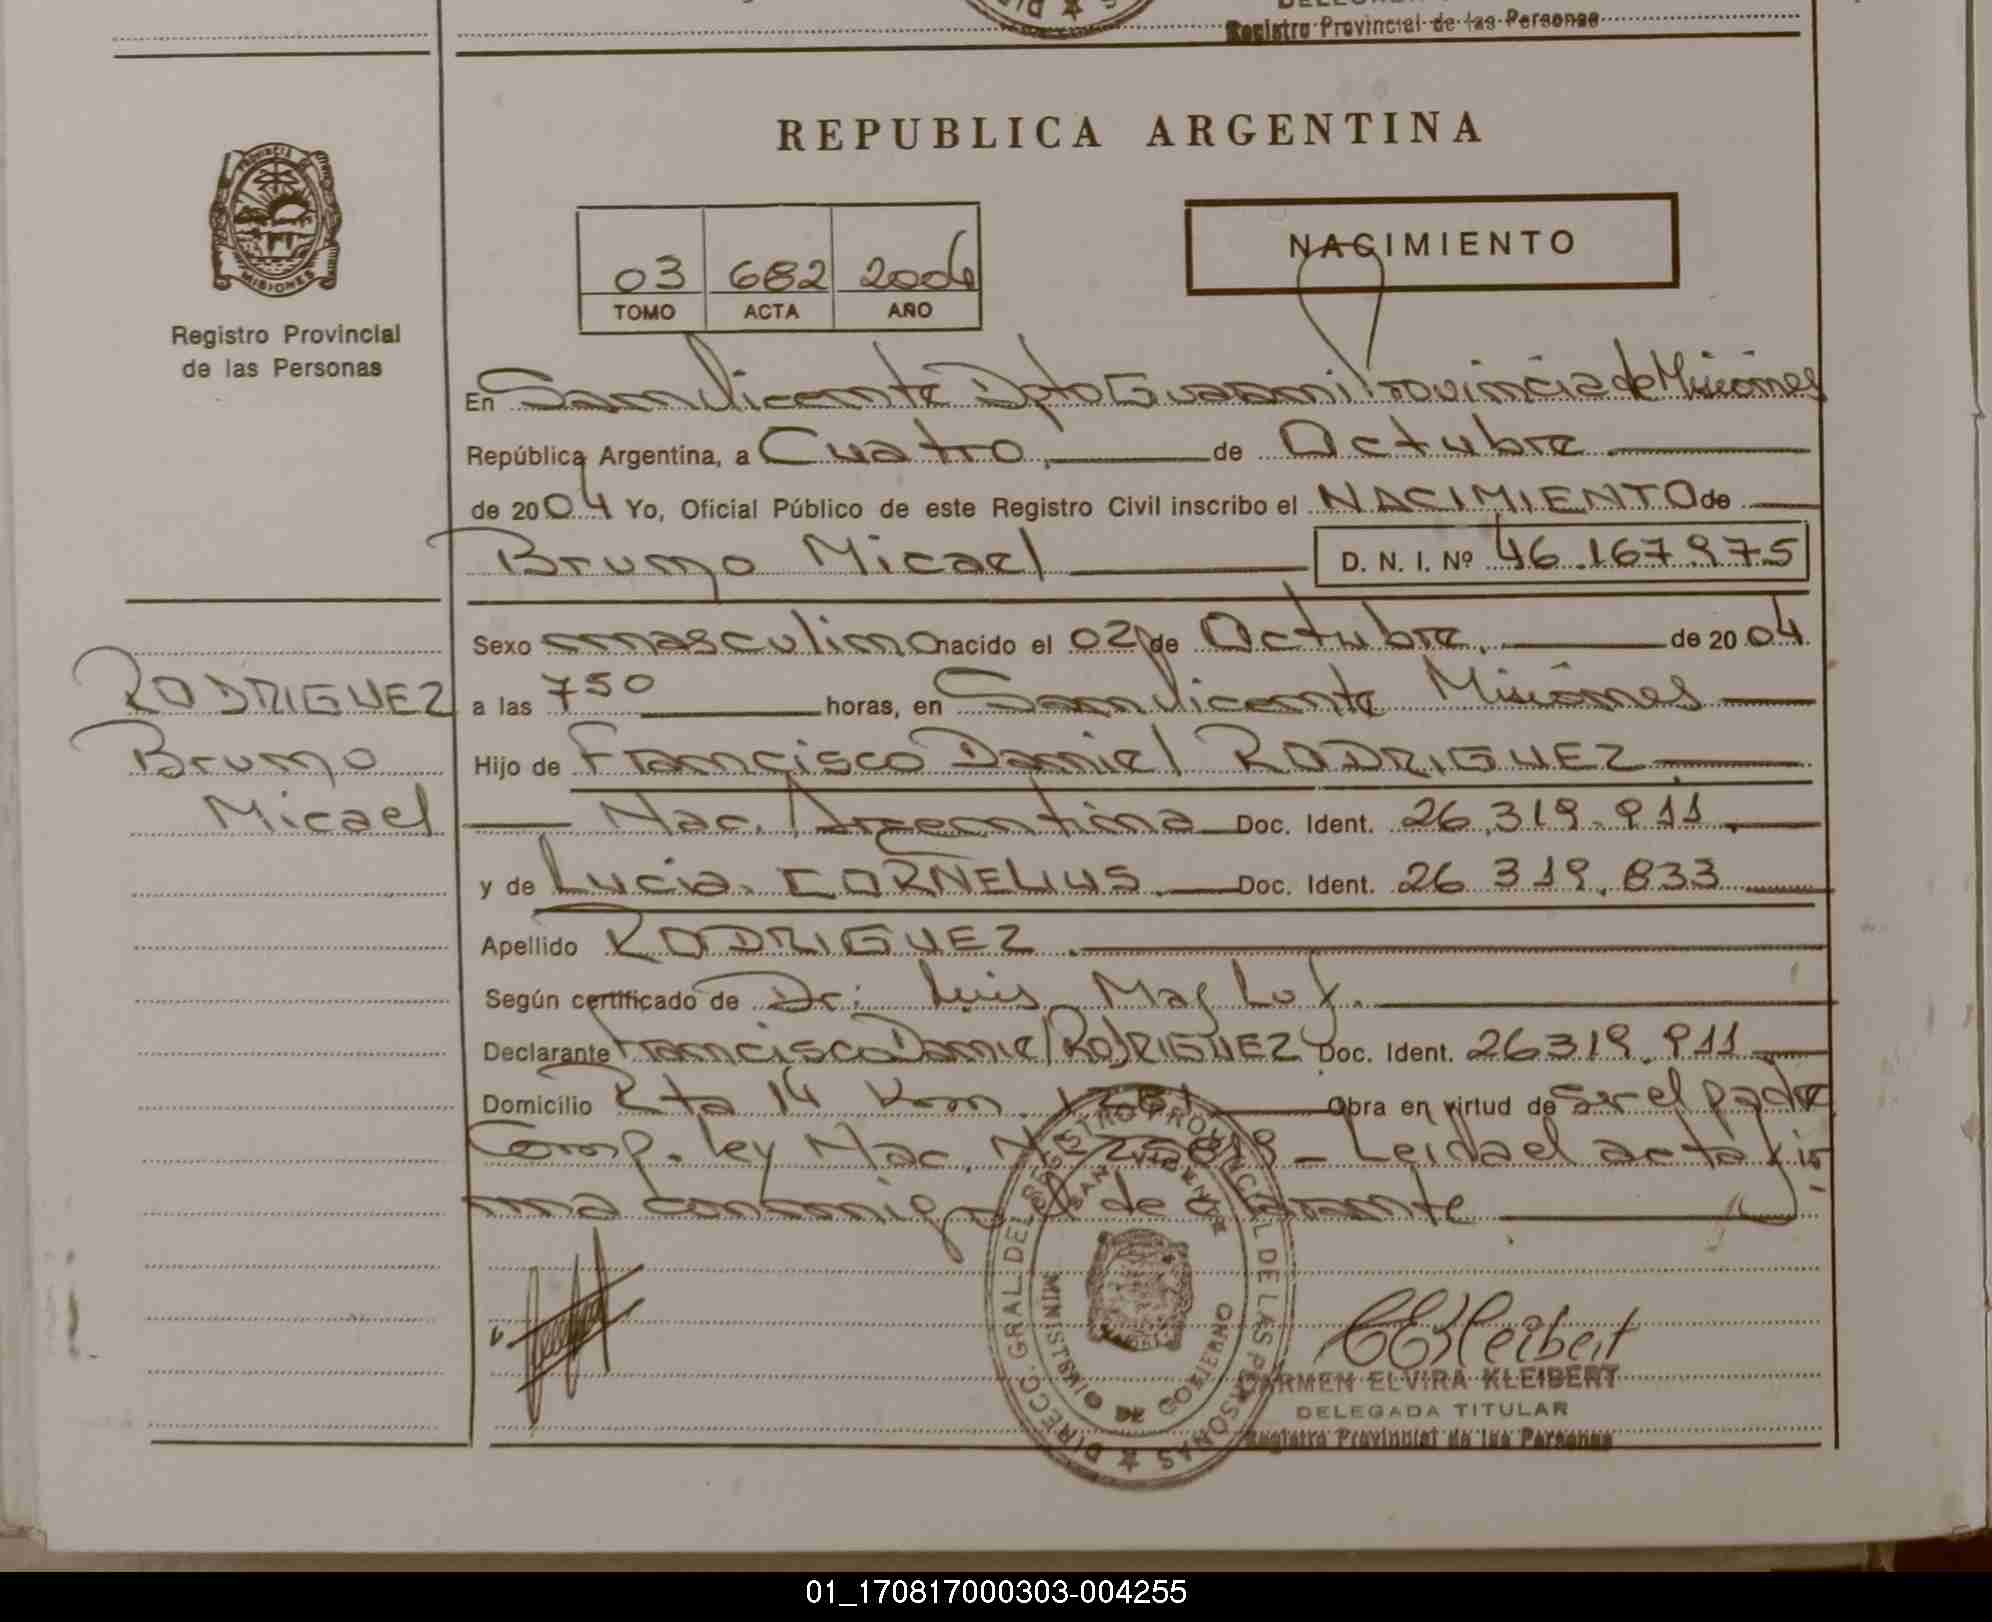 Registro Provincial de las Personas
REPUBLICA ARGENTINA
PROVINCIA DE MISIONES
Registro Provincial
de las Personas
03 682 2004
TOMO ACTA AÑO
NACIMIENTO
En San Vicente Dpto Guarani Provincia de Misiones
República Argentina, a Cuatro de Octubre
de 2004 Yo, Oficial Público de este Registro Civil inscribo el NACIMIENTO de
Bruno Micael D. N. I. Nº 46.167.975
RODRIGUEZ
Bruno
Micael
Sexo masculino nacido el 02 de Octubre, de 2004.
a las 750 horas, en San Vicente Misiones
Hijo de Francisco Daniel RODRIGUEZ
Nac. Argentina Doc. Ident. 26.319.911
y de Lucia CORNELIUS Doc. Ident. 26 319.833
Apellido RODRIGUEZ.
Según certificado de Dr: Luis
Declarante Francisco Daniel RODRIGUEZ Doc. Ident. 26319.911
Domicilio Rta 14 Km. Obra en virtud de ser el padre
Comp. Ley Nac. Nº - Leida el acta fir
ma conmigo el declarante
DIRECC. GRAL. DEL REGISTRO PROVINCIAL DE LAS PERSONAS
SAN VICENTE
MINISTERIO DE GOBIERNO
CEKleibert
CARMEN ELVIRA KLEIBERT
DELEGADA TITULAR
Registro Provincial de las Personas
01_170817000303-004255